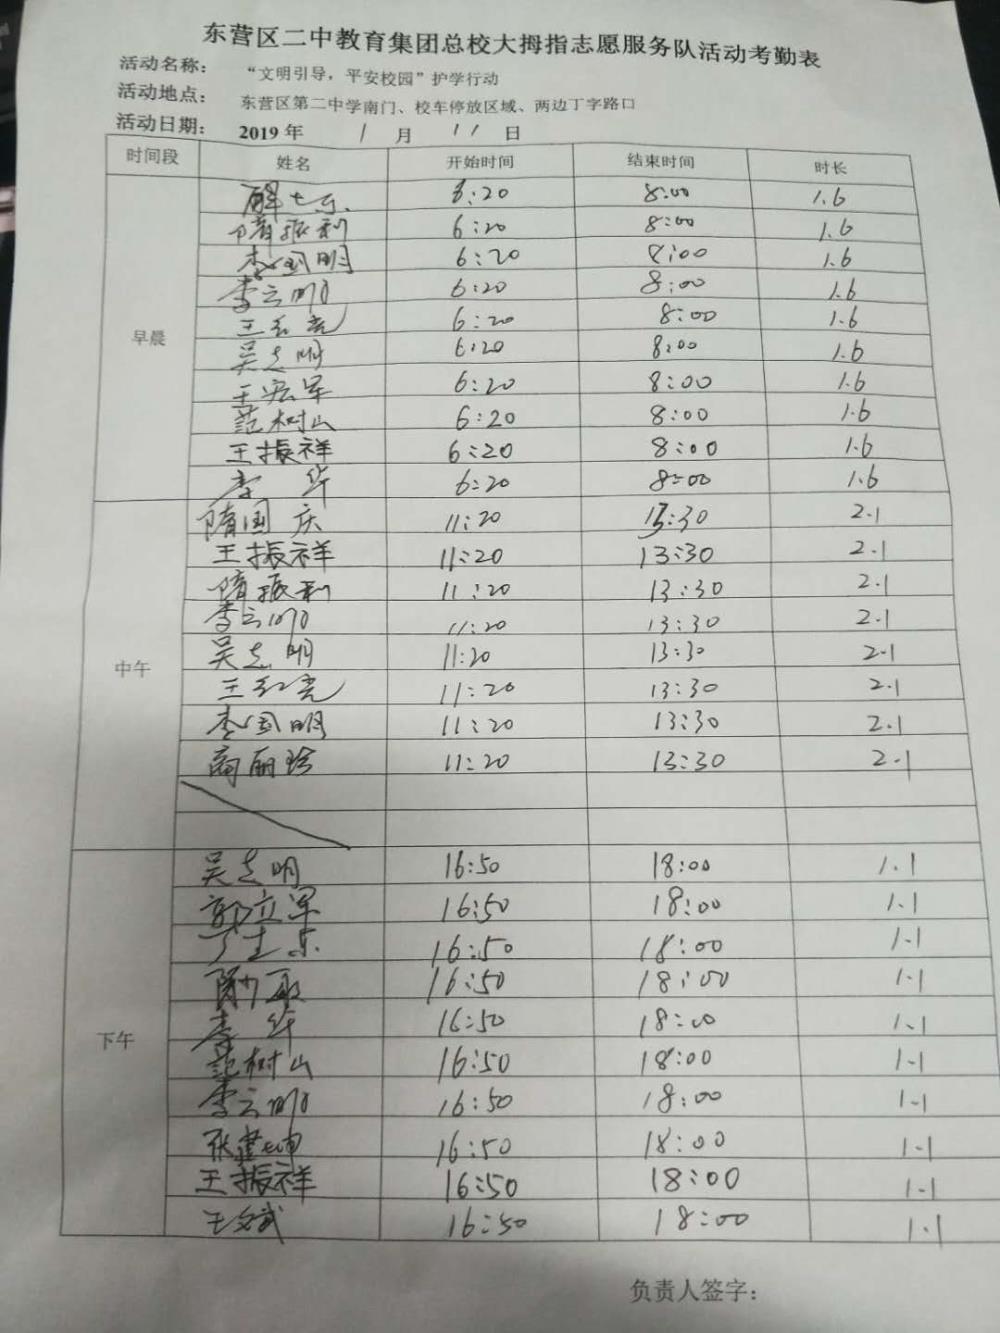 东营区二中教育集团总校大拇指志愿服务队活动考勤表
活动名称： “文明引导，平安校园”护学行动
活动地点： 东营区第二中学南门、校车停放区域、两边丁字路口
活动日期： 2019年 1 月 11 日
时间段 姓名 开始时间 结束时间 时长
早晨
6:20 8:00 1.6
隋振利 6:20 8:00 1.6
李国明 6:20 8:00 1.6
李云明 6:20 8:00 1.6
王红亮 6:20 8:00 1.6
吴志明 6:20 8:00 1.6
王宏军 6:20 8:00 1.6
范树山 6:20 8:00 1.6
王振祥 6:20 8:00 1.6
李华 6:20 8:00 1.6
中午
隋国庆 11:20 13:30 2.1
王振祥 11:20 13:30 2.1
隋振利 11:20 13:30 2.1
李云明 11:20 13:30 2.1
吴志明 11:20 13:30 2.1
王红亮 11:20 13:30 2.1
李国明 11:20 13:30 2.1
商丽珍 11:20 13:30 2.1
下午
吴志明 16:50 18:00 1.1
郭立军 16:50 18:00 1.1
16:50 18:00 1.1
16:50 18:00 1.1
李华 16:50 18:00 1.1
范树山 16:50 18:00 1.1
李云明 16:50 18:00 1.1
张建坤 16:50 18:00 1.1
王振祥 16:50 18:00 1.1
王文斌 16:50 18:00 1.1
负责人签字：